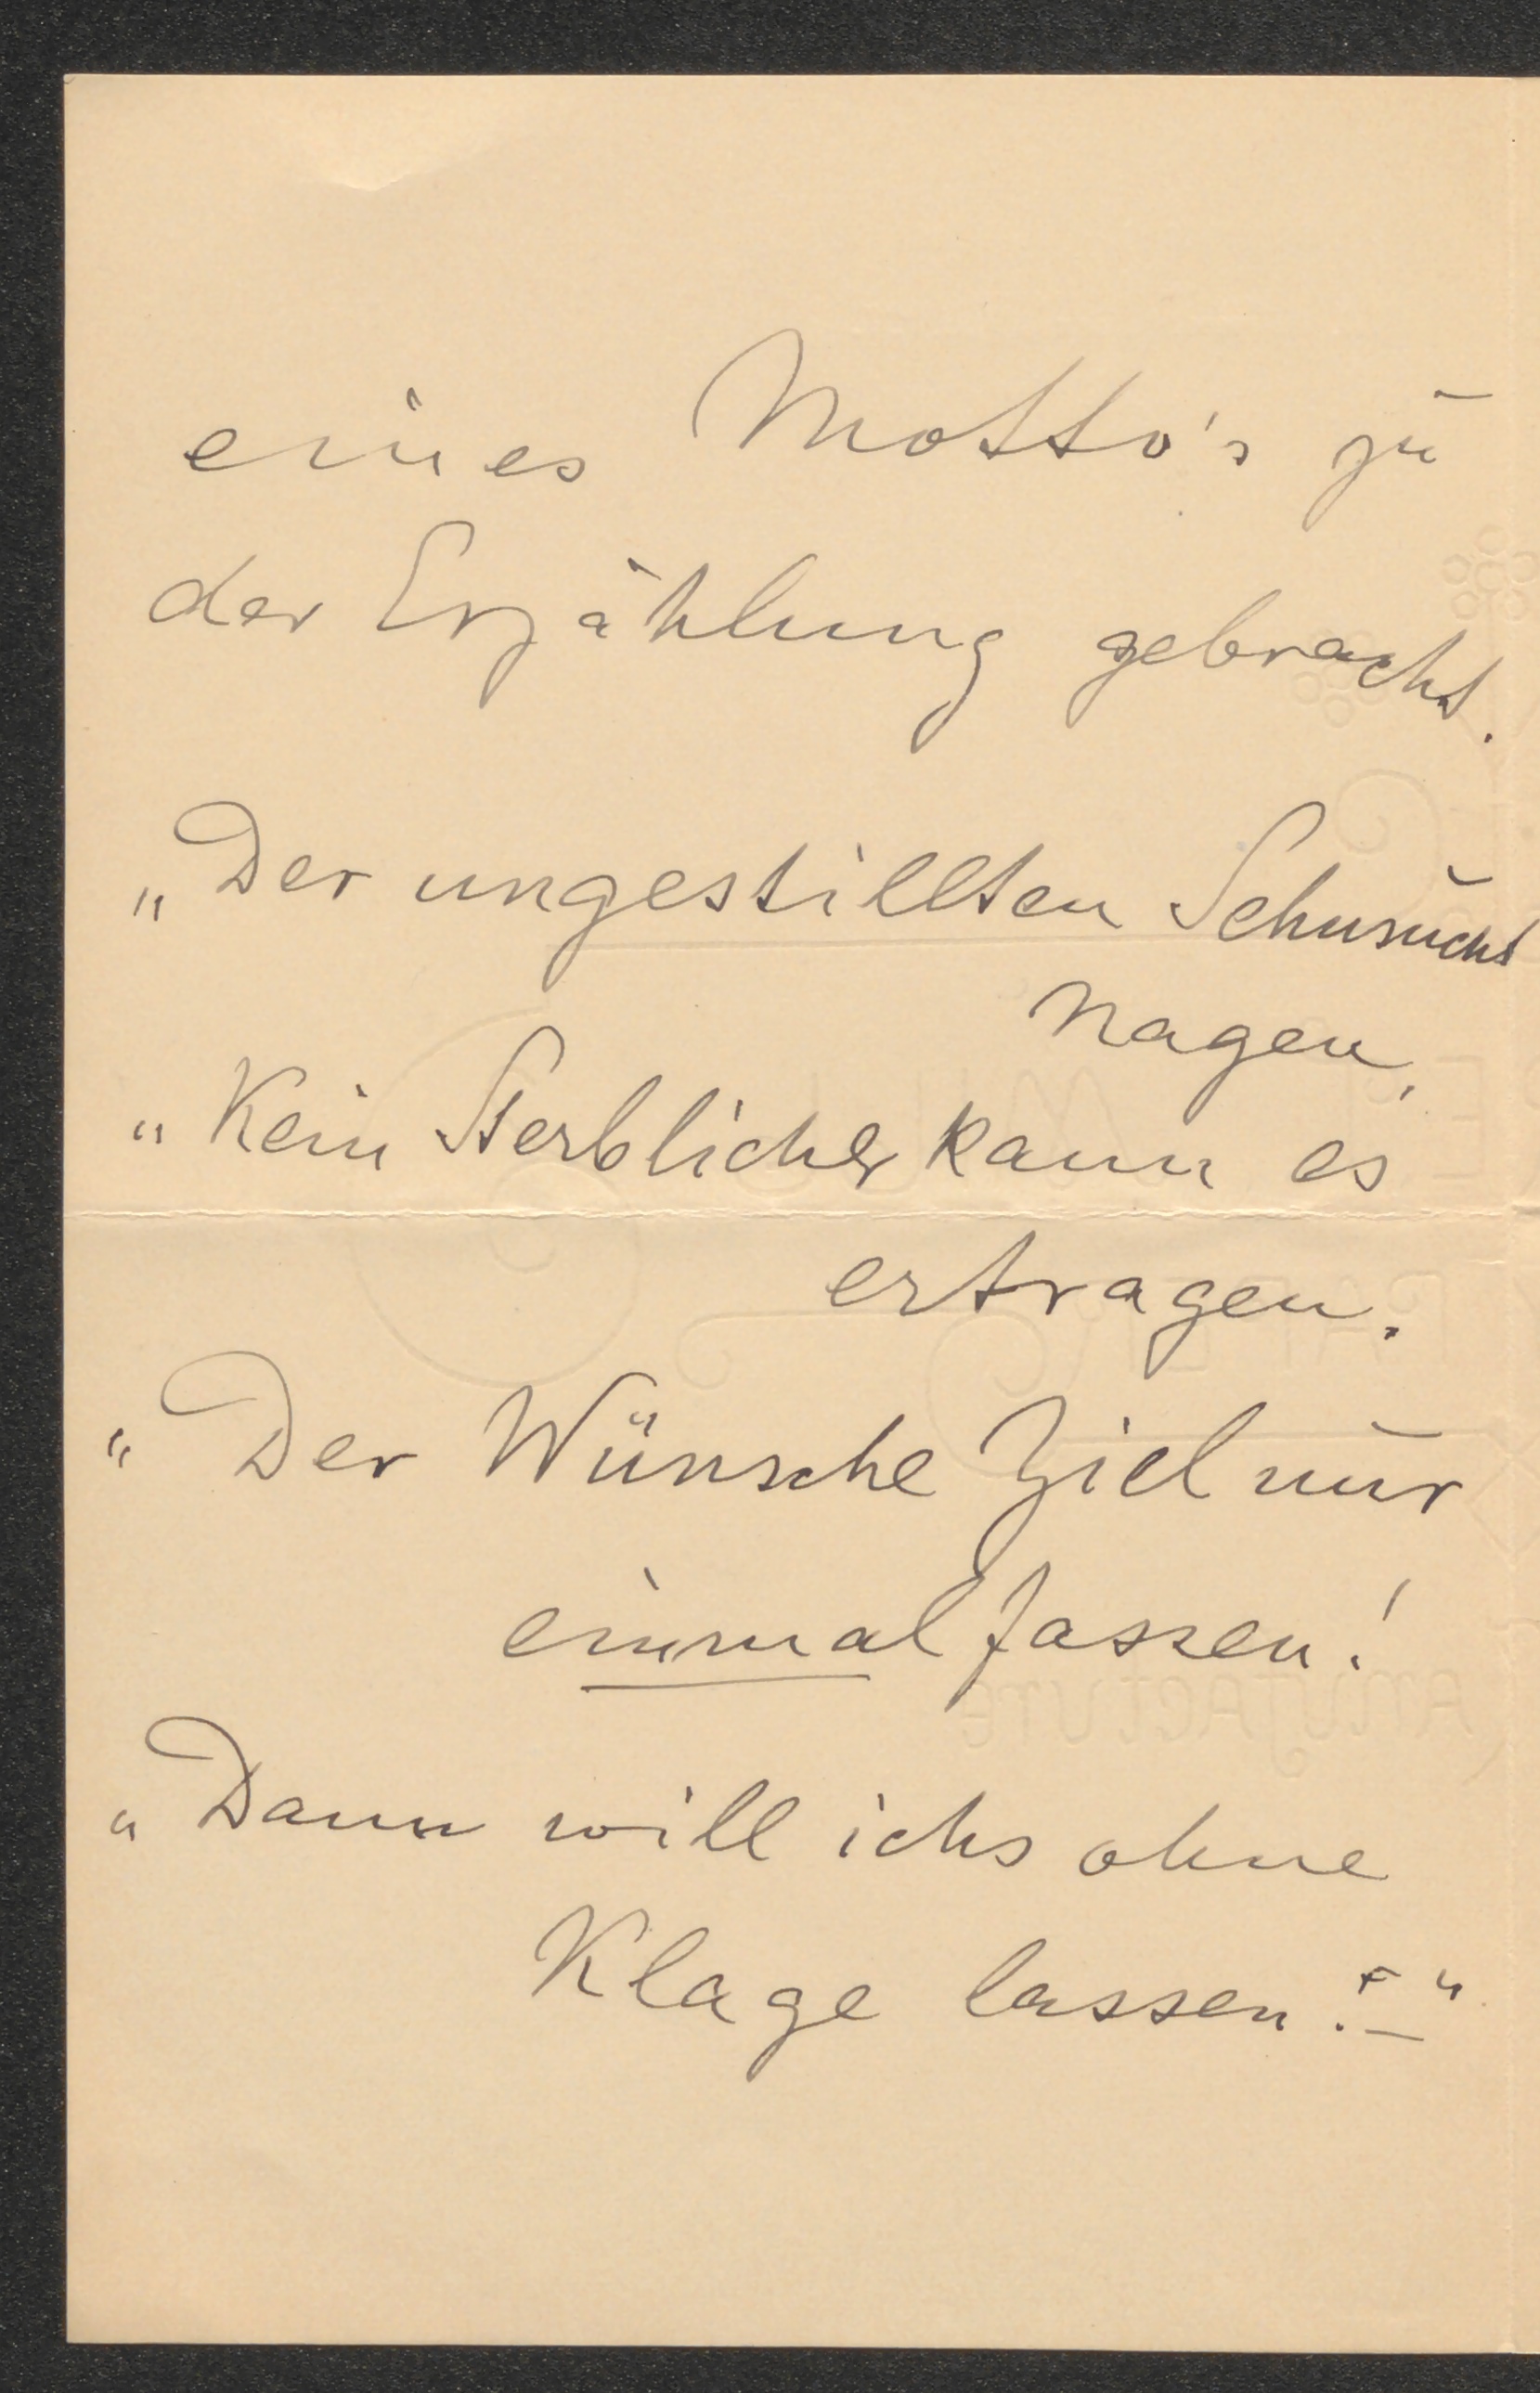 eines Motto's zu
der Erzählung gebracht.
„Der ungestillten Sehnsucht
Nagen,
„Kein Sterblicher kann es
ertragen.
„Der Wünsche Ziel nur
einmal fassen!
„Dann will ichs ohne
Klage lassen! –“